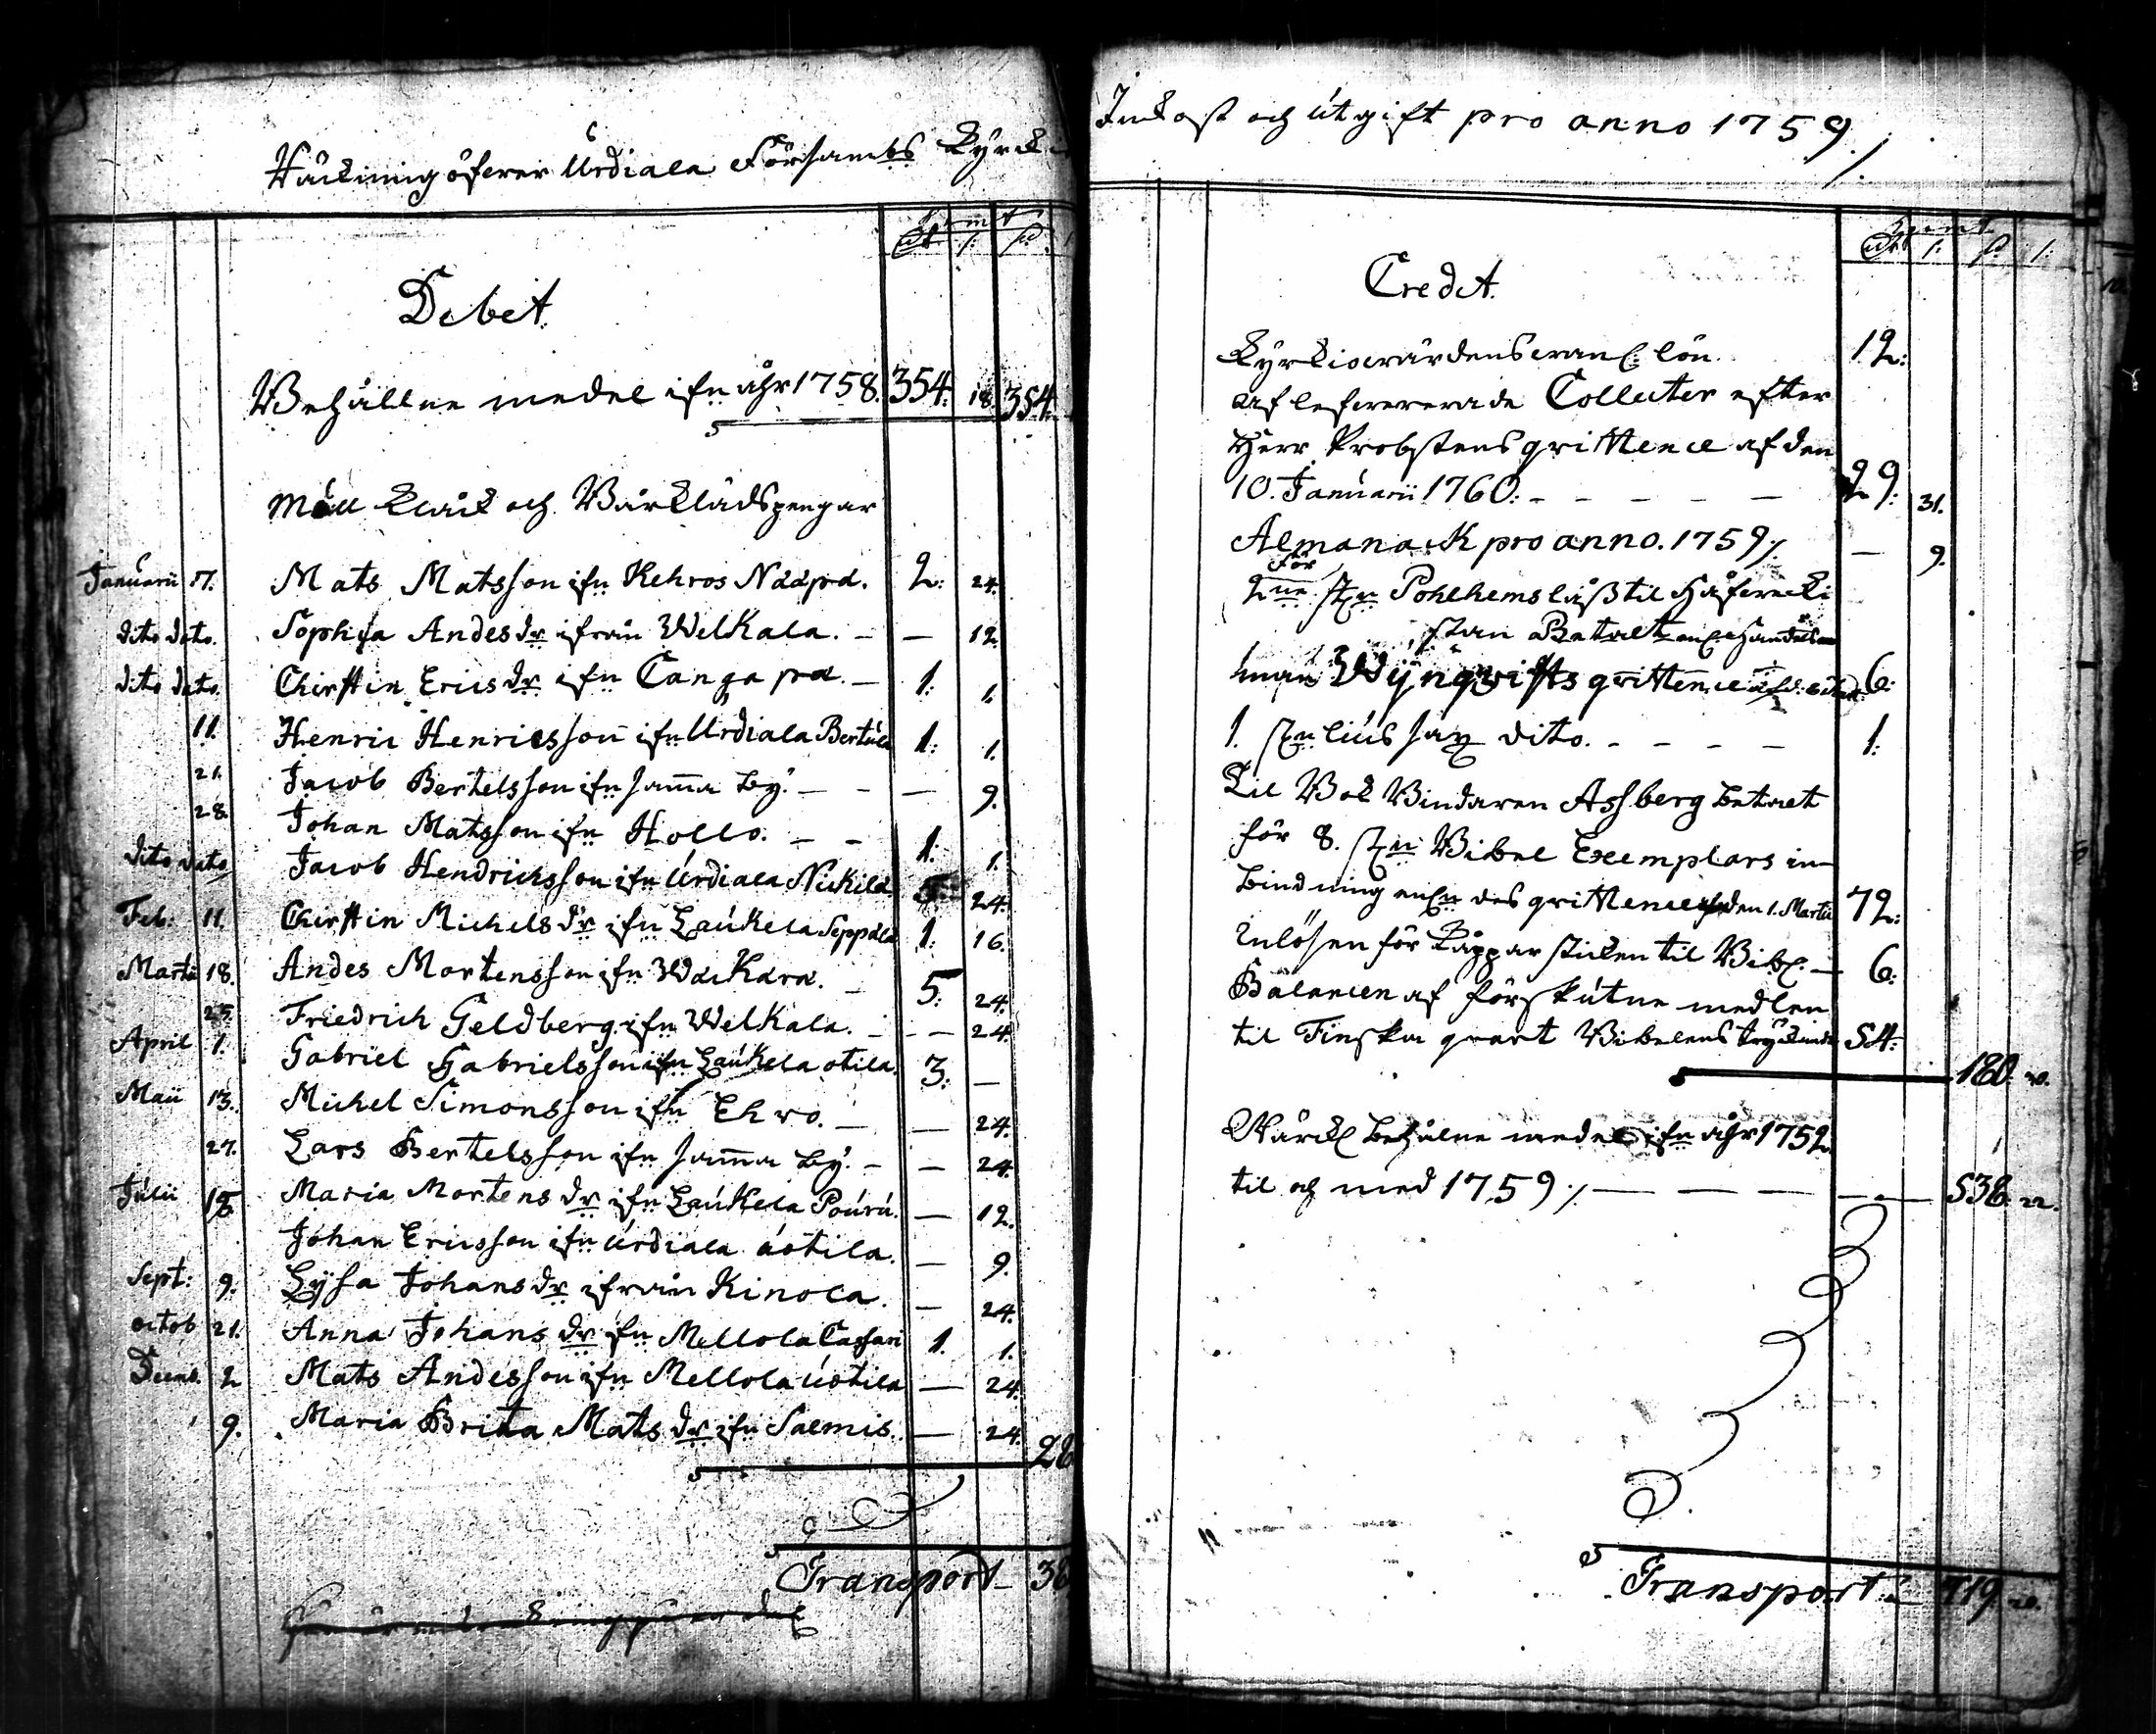 Räckning öfwer Urdiala Församls Kyrcki
Debet.
Behållne medel ifrn åhr 1758. 354. 18 354.
Mull Klåck och Bårklädspengar
Januarii 7. Mats Matsson ifrn Kehros Nääpä. 2: 24.
dito dato. Sophia Andesdr ifrån Welkala. — — 12
dito dato. Chirstin Ericsdr ifrn Canga pä. — 1: 1.
11. Henric Henricsson ifrn Urdiala Bertula 1: 1.
21. Jacob Bertelsson ifrn samma by. — — — 9.
28. Johan Matsson ifrn Hollo. — — 1. 1.
dito dato Jacob Hendricksson ifrn Urdiala Nickilä 5: 24.
Feb: 11. Chirstin Michelsdr ifrn Laukela Seppälä 1: 16.
Martii 18. Andes Mortensson ifrn Waikara. — 5: 24.
25. Friedrich Geldberg ifrn Welkala. — — 24.
April 1. Gabriel Gabrielsson ifrn Laukela otila. 3: —
Maii 13. Michel Simonsson ifrn Ehro. — — 24.
27. Lars Bertelsson ifrn samma by. — — 24.
Julii 15 Maria Mortensdr ifrn Laukela Pouru. — 12.
Johan Ericsson ifrn Urdiala uotila. — 9.
Sept: 9. Lysa Johansdr ifrån Kinola. — 24.
octob 21. Anna Johansdr ifrn Mellola Cassari 1. 1.
Decemb. 2 Mats Andesson ifrn Mellola uotila — 24.
9. Maria Brita Matsdr ifrn Salmis. — 24.
28
Transport — 38
Inkost och utgift pro anno 1759./.
Credit.
Kyrkiowärdens lön. 12:
aflefwererade Collecter efter
Herr Probstens qvittence af den
10. Januarii 1760. — — — — — 29: 31.
Almanack pro anno. 1759 ./. — 9.
För
2ne st:n Polhems låss til
stan Betalt
man Wynqvists qvittence 6:
1. st:n liussax dito. — — — — 1:
Til Bok Bindaren Assberg betalt
för 8. st:n Bibel Exemplars in-
bindning des qvittence af den 1. Martii 72:
Inlösen för Kappar sticken til Bibl. — 6:
Balancen af förskutne medlen
til Finska quart Bibelens tryckande 54:
180. 20.
Wärkl behålne medel ifrn åhr 1752
til och med 1759 ./. — — — — — 538. 22.
Transport — 719. 10.